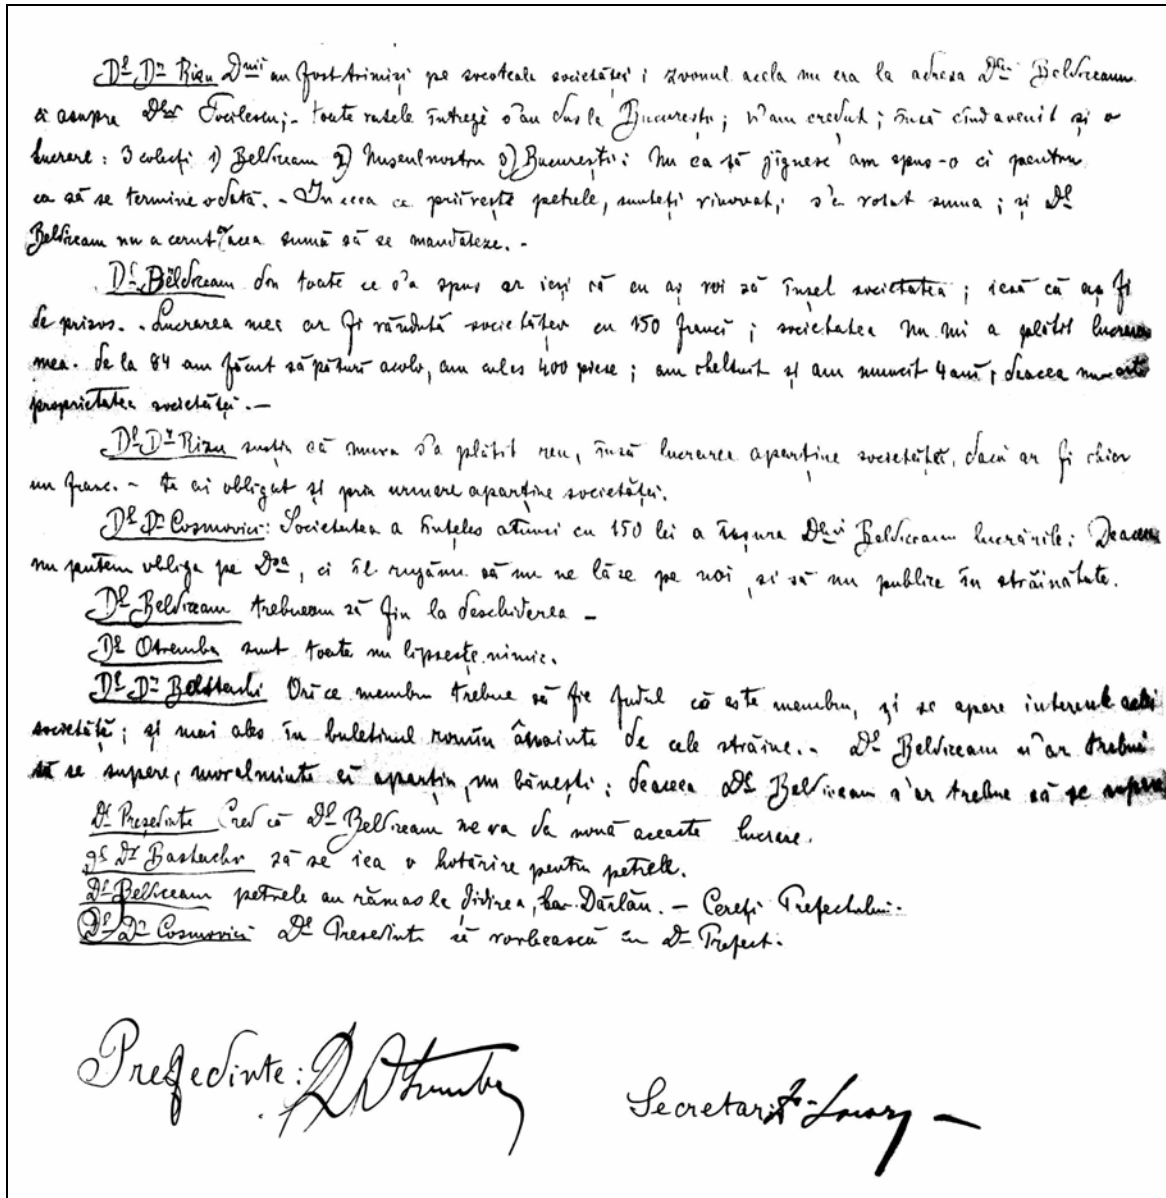 Dl Dr Rizu Dnii au fost trimişi pe socoteala societăţei; zvonul acela nu era la adresa Dlui Beldiceanu
ci asupra Dlui Tocilescu; - toate vasele întregi s'au dus la Bucureşti; n'am crezut; însă cînd a venit şi o
lucrare: 3 colecţi 1) Beldiceanu 2) Museul nostru 3) Bucureşti: Nu ca să jignesc am spus-o ci pentru
ca să se termine odată. - In ceea ce priveşte petrele, sunteţi vinovat; s'a votat suma; şi Dl
Beldiceanu nu a cerut ca acea sumă să se mandateze. -
Dl Beldiceanu din toate ce s'a spus ar ieşi că eu aş voi să înşel societatea; iesă că aş fi
de prisos. - Lucrarea mea ar fi vândută societăţei cu 150 franci; societatea nu mi a plătit lucrarea
mea. de la 84 am făcut săpături acolo, am cules 400 piese; am cheltuit şi am muncit 4 ani; deacea nu este
proprietatea societăţei. -
Dl Dr Rizu susţin că munca s'a plătit reu, însă lucrarea aparţine societăţei, dacă ar fi chiar
un franc. - te ai obligat şi prin urmare aparţine societăţei.
Dl Dr Cosmovici: Societatea a înţeles atunci cu 150 lei a uşura Dlui Beldiceanu lucrările: Deaceea
nu putem obliga pe Dsa, ci îl rugăm să nu ne lase pe noi, si să nu publice în străinătate.
Dl Beldiceanu trebueam să fiu la deschiderea -
Dl Otremba sunt toate nu lipseşte nimic.
Dl Dr Ori ce membru trebue să fie fudul că este membru, şi se apere interesele
societăţi; şi mai ales în buletinul român înainte de cele străine. - Dl Beldiceanu n'ar trebui
să se supere, moralminte ei aparţin, nu băneşti; deaceea Dl Beldiceanu n'ar trebue să se supere
Dl Preşedinte Cred că Dl Beldiceanu ne va da nouă aceaste lucrare.
Dl Dr să se iea o hotărîre pentru petrele.
Dl Beldiceanu petrele au rămas la Darlău. - Cereţi Prefectului.
Dl Dr Cosmovici Dl Presedinte să vorbească cu Dl Prefect.
Preşedinte: Otremba
Secretar: